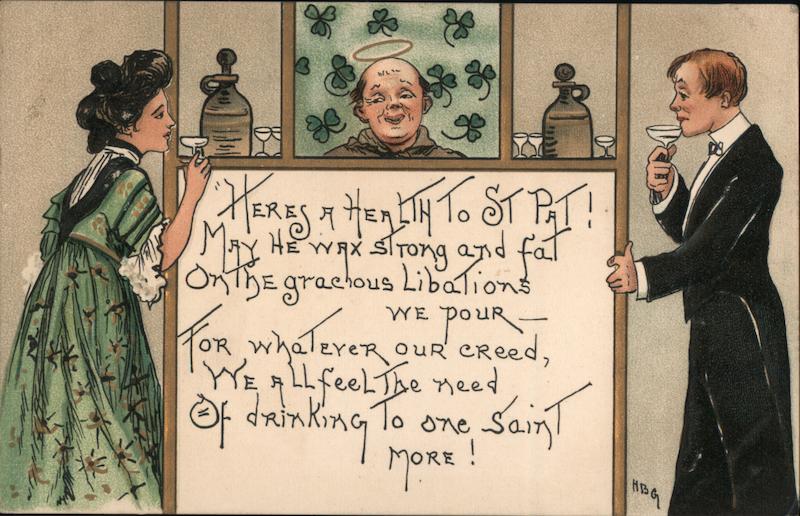 "Heres a Health to St Pat!
May he wax strong and fat
On the gracious Libations
we pour—
For whatever our creed,
We all feel the need
Of drinking to one Saint
more!
HBG